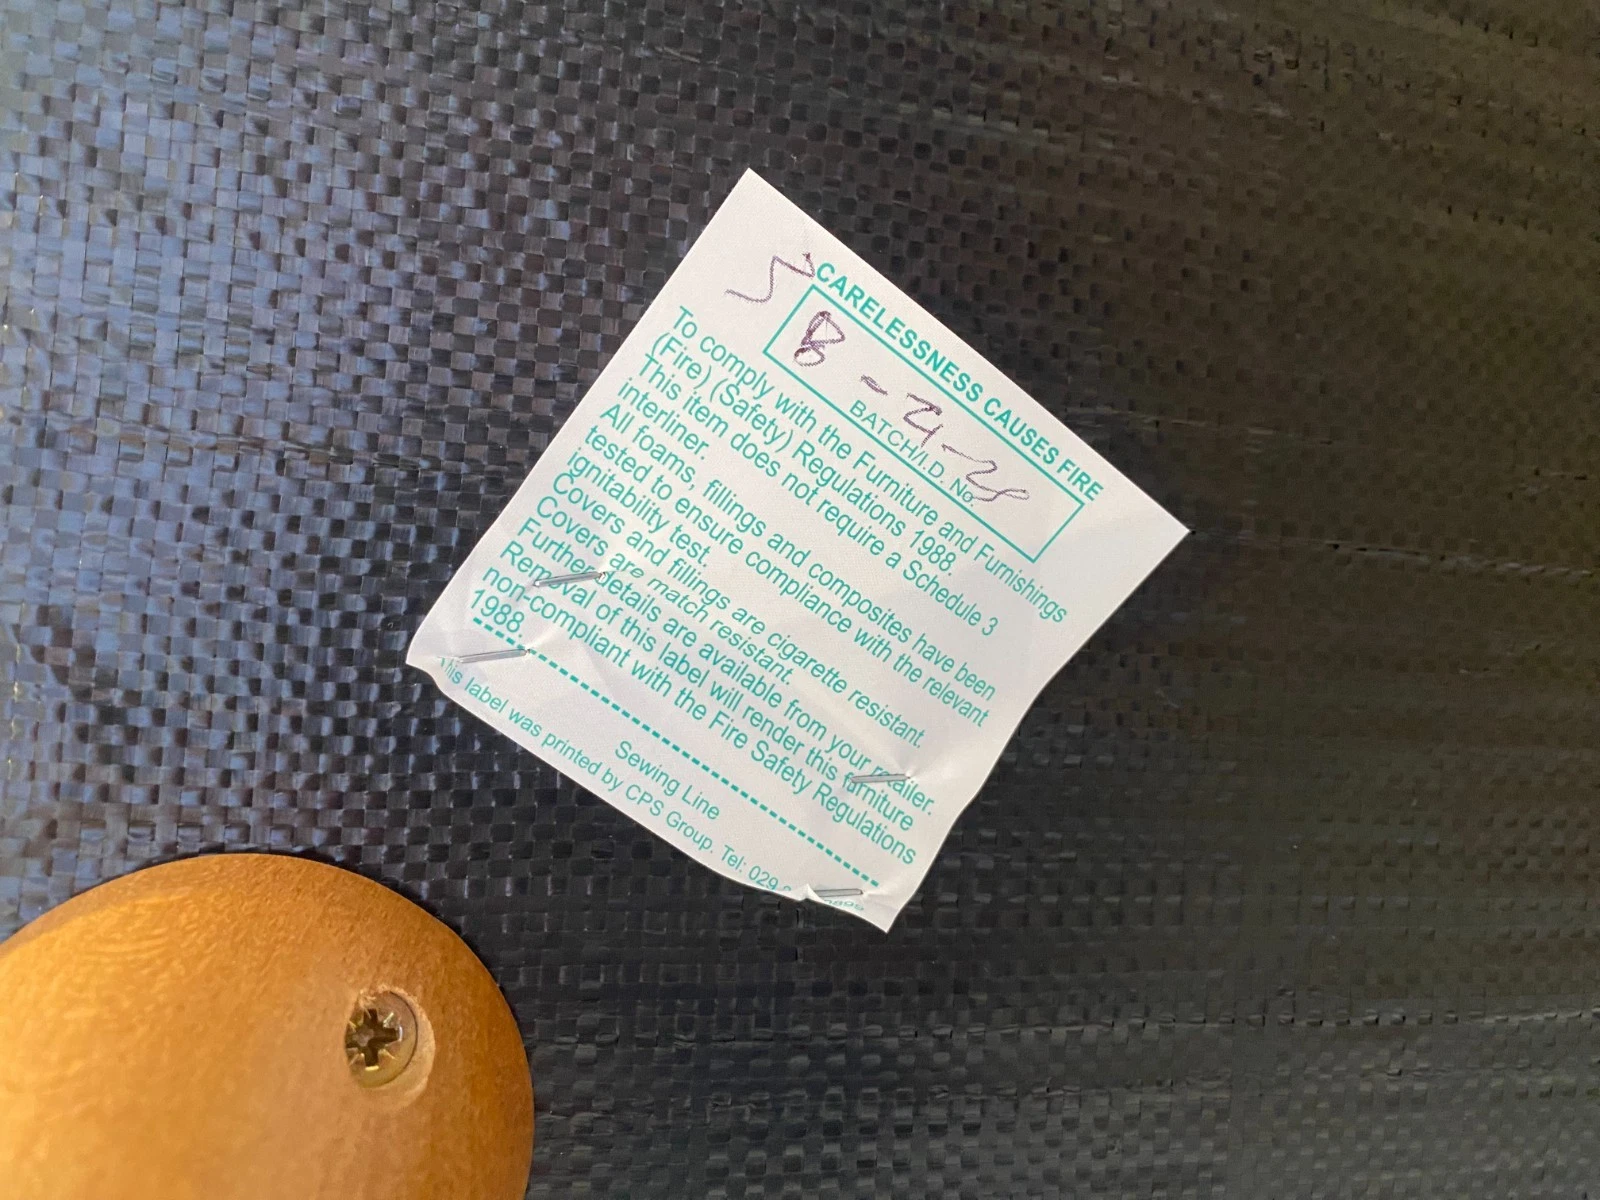 CARELESSNESS CAUSES FIRE
8 - 21 -
BATCH/I.D. No.
To comply with the Furniture and Furnishings
(Fire) (Safety) Regulations 1988.
This item does not require a Schedule 3
interliner.
All foams, fillings and composites have been
tested to ensure compliance with the relevant
ignitability test.
Covers and fillings are cigarette resistant.
Covers are match resistant.
Further details are available from your retailer.
Removal of this label will render this furniture
non-compliant with the Fire Safety Regulations
1988.
Sewing Line
This label was printed by CPS Group. Tel: 029